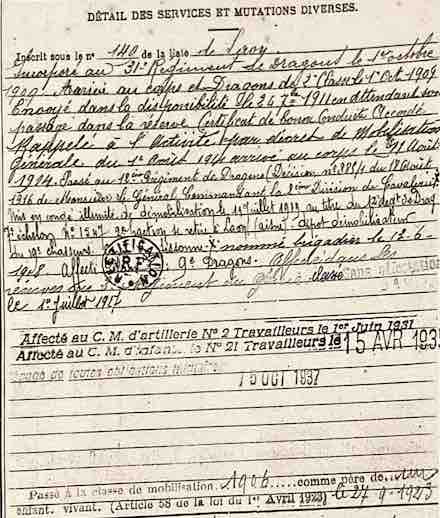 DÉTAIL DES SERVICES ET MUTATIONS DIVERSES.
Inscrit sous le n° 140 de la liste de Leroy
Incorporé au 31e Régiment de Dragons le 1er octobre
1909 Arrivé au corps et Dragons de 2e Classe le 1er Oct 1909
Envoyé dans la disponibilité le 26 7bre 1911 en attendant son
passage dans la réserve Certificat de bonne Conduite Accordé
Rappelé à l'Activité par décret de Mobilisation
Générale du 1er Août 1914 arrivé au corps le Août
1914. Passé au Régiment de Dragons (Décision n° du 18 Août
1916 de Monsieur le Général Commandant la 2ème Division de Cavalerie) X
Mis en congé illimité de démobilisation le juillet 1919 au titre du de Drag
échelon N° 1547 se retire à Laon (Aisne) dépôt démobilisateur
du 19e chasseurs X nommé brigadier le 12-6-
1918 Affecté 9e Dragons. Affecté dans les
réserves du Régiment
le 1er Juillet 1917
sans affectation
RF
Affecté au C. M. d'artillerie N° 2 Travailleurs le 1er Juin 1931
Affecté au C. M. d'Infanterie N° 21 Travailleurs le 15 AVR 193
Dégagé de toutes obligations militaires
15 OCT 1937
Passé à la classe de mobilisation 1906 comme père de un
enfant vivant. (Article 58 de la loi du 1er Avril 1923) le 27-9-1923